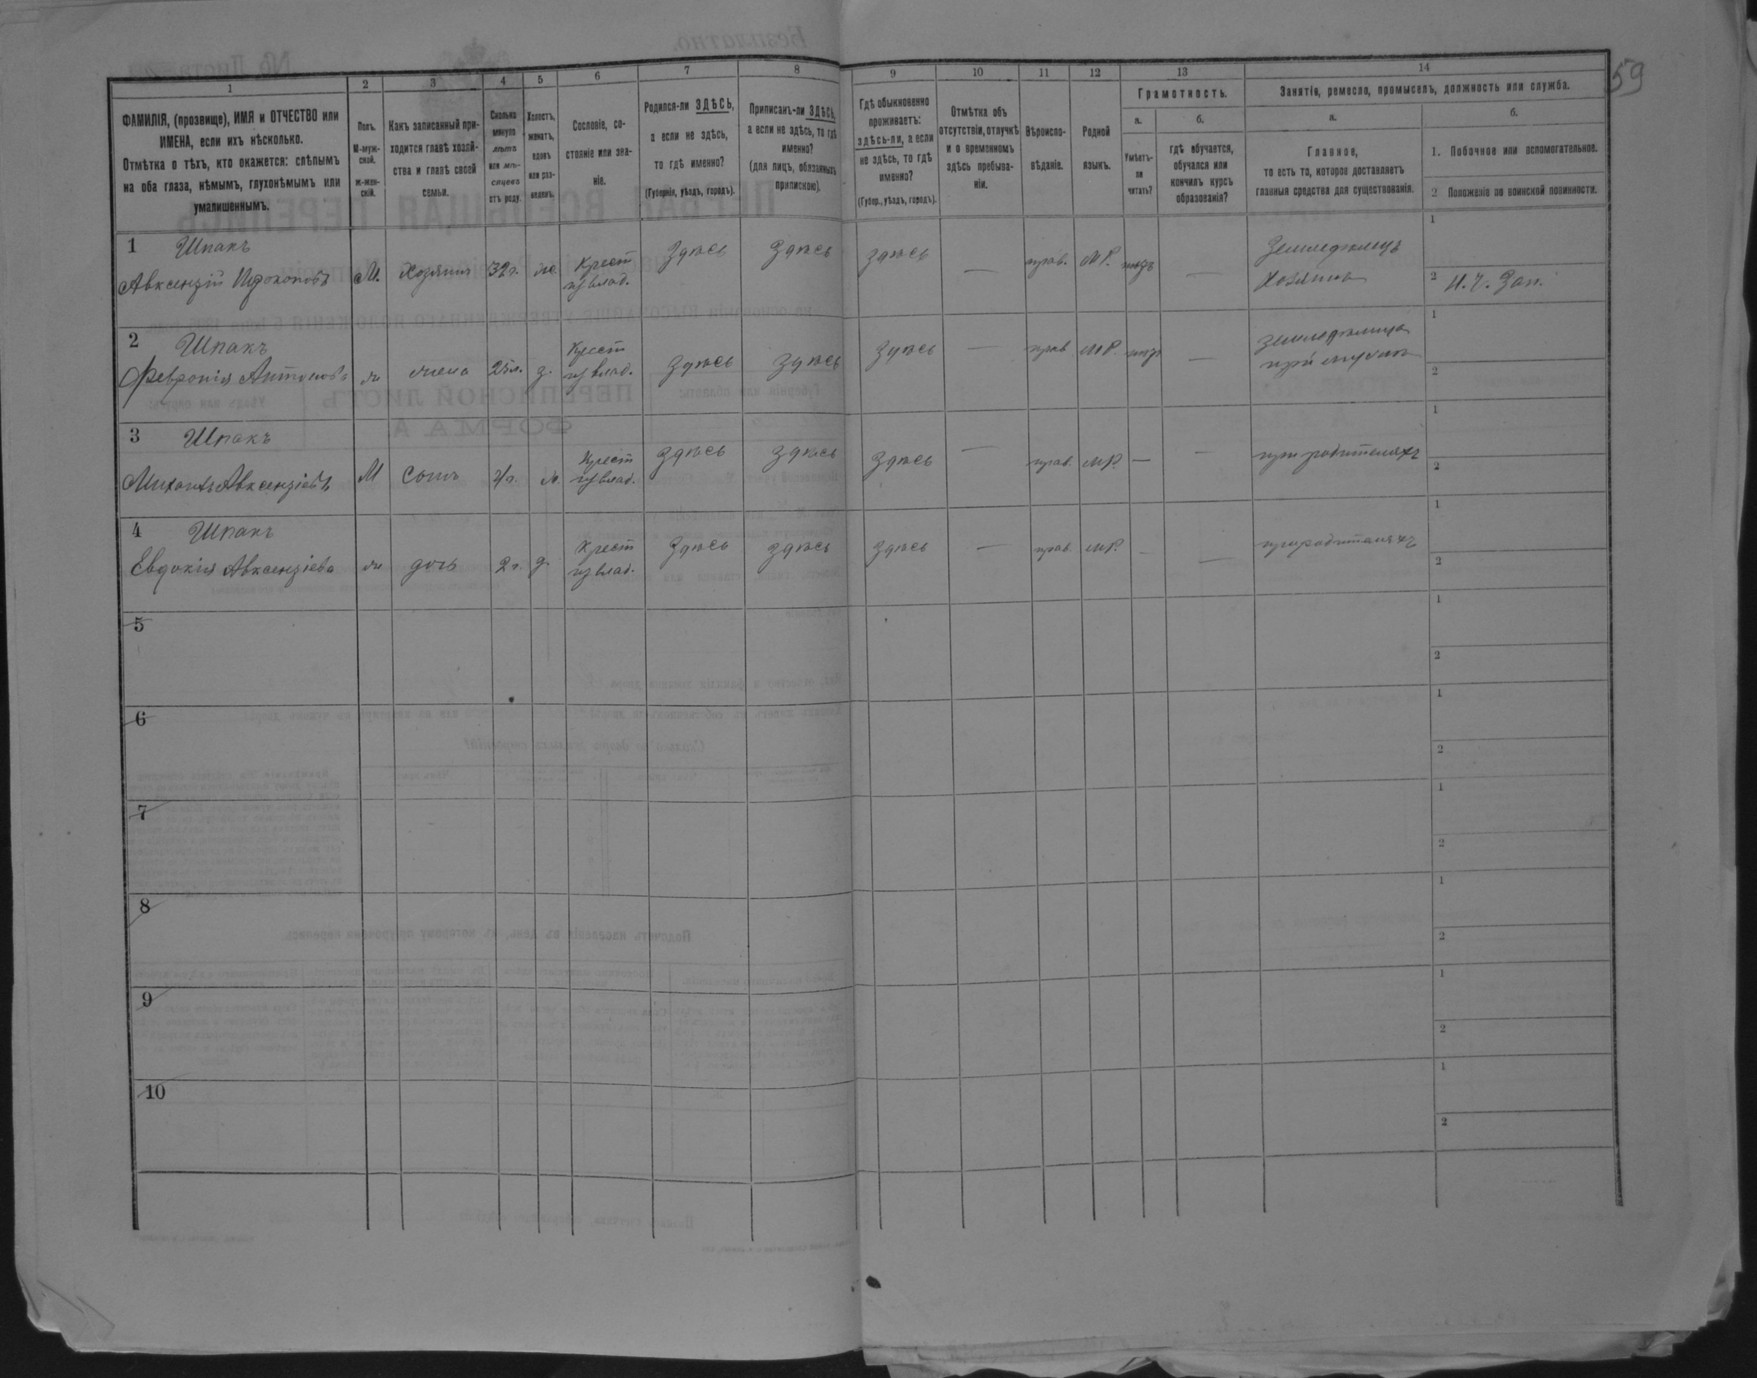 59
1
2
3
4
5
6
7
8
9
10
11
12
13
14
ФАМИЛІЯ, (прозвище), ИМЯ и ОТЧЕСТВО или
ИМЕНА, если ихъ нѣсколько.
Отмѣтка о тѣхъ, кто окажется: слѣпымъ
на оба глаза, нѣмымъ, глухонѣмымъ или
умалишеннымъ.
Полъ.
М-муж-
ской.
ж-жен-
скій.
Какъ записанный при-
ходится главѣ хозяй-
ства и главѣ своей
семьи.
Сколько
минуло
лѣтъ
или мѣ-
сяцевъ
отъ роду.
Холостъ,
женатъ,
вдовъ
или раз-
веденъ.
Сословіе, со-
стояніе или зва-
ніе.
Родился-ли ЗДѢСЬ,
а если не здѣсь,
то гдѣ именно?
(Губернія, уѣздъ, городъ).
Приписанъ-ли ЗДѢСЬ,
а если не здѣсь, то гдѣ
именно?
(для лицъ, обязанныхъ
припискою).
Гдѣ обыкновенно
проживаетъ:
здѣсь-ли, а если
не здѣсь, то гдѣ
именно?
(Губер., уѣздъ, городъ).
Отмѣтка объ
отсутствіи, отлучкѣ
и о временномъ
здѣсь пребыва-
ніи.
Вѣроиспо-
вѣданіе.
Родной
языкъ.
Грамотность.
а.
Умѣетъ-
ли
читать?
б.
гдѣ обучается,
обучался или
кончилъ курсъ
образованія?
Занятія, ремесло, промыселъ, должность или служба.
а.
Главное,
то есть то, которое доставляетъ
главныя средства для существованія.
б.
1. Побочное или вспомогательное.
2 Положеніе по воинской повинности.
1 Шпакъ
Авксентій Прокоповъ М. Хозяинъ 32 г. ж. Крест. из влад. Здѣсь Здѣсь здѣсь — прав. МР. — Земледѣлецъ Хозяинъ 1 2 И. У. Зап.
2 Шпакъ
Февронія Антонова ж жена 25 л. з. Крест из влад. Здѣсь Здѣсь Здѣсь — прав. МР. — земледѣлица при мужѣ 1 2
3 Шпакъ
Михаилъ Авксентіевъ М Сынъ 4 г. Крест из влад. Здѣсь Здѣсь Здѣсь — прав. МР. — — при родителяхъ 1 2
4 Шпакъ
Евдокія Авксентіева ж дочь 2 г. д. Крест из влад. Здѣсь Здѣсь Здѣсь — прав. МР. — — при родителяхъ 1 2
5 1 2
6 1 2
7 1 2
8 1 2
9 1 2
10 1 2